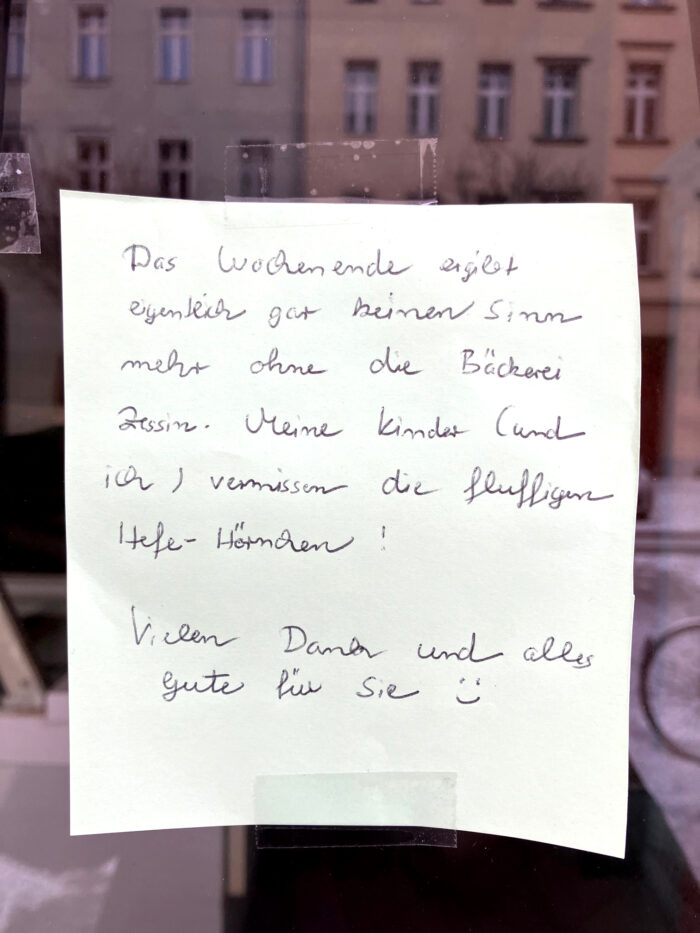 Das Wochenende ergibt
eigentlich gar keinen Sinn
mehr ohne die Bäckerei
Zessin. Meine Kinder (und
ich) vermissen die fluffigen
Hefe-Hörnchen!
Vielen Dank und alles
Gute für Sie :)